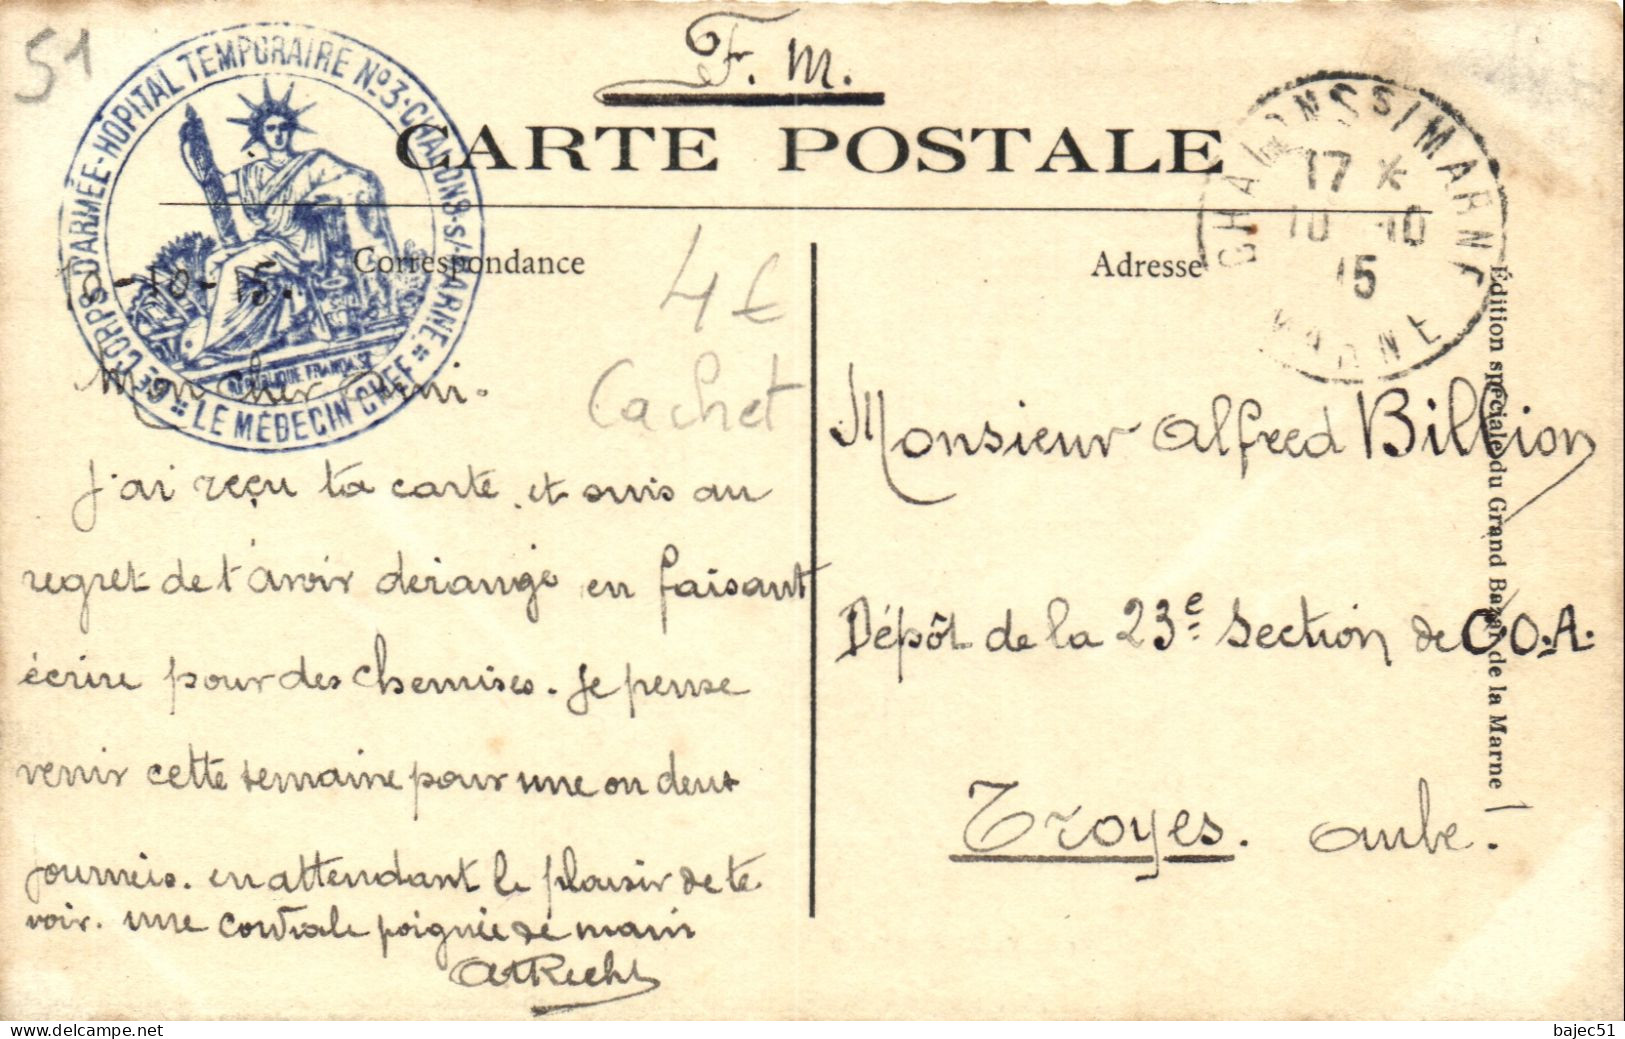 51
F. M.
6E CORPS D'ARMÉE - HOPITAL TEMPORAIRE No 3 - CHALONS-S/-MARNE
LE MÉDECIN CHEF
RÉPUBLIQUE FRANÇAISE
CARTE POSTALE
CHALONS S/ MARNE
17 *
10 -10
15
MARNE
Correspondance
Adresse
-10-15.
4€
Cachet
Mon cher
J'ai reçu ta carte, et suis au
regret de t'avoir derangé en faisant
écrire pour des chemises. Je pense
venir cette semaine pour une ou deux
journeés. en attendant le plaisir de te
voir. une cordiale poignée de main
Monsieur Alfred Billion
Dépôt de la 23e Section de C.O.A.
Troyes. Aube.
Édition spéciale du Grand Bazar de la Marne
www.delcampe.net
bajec51